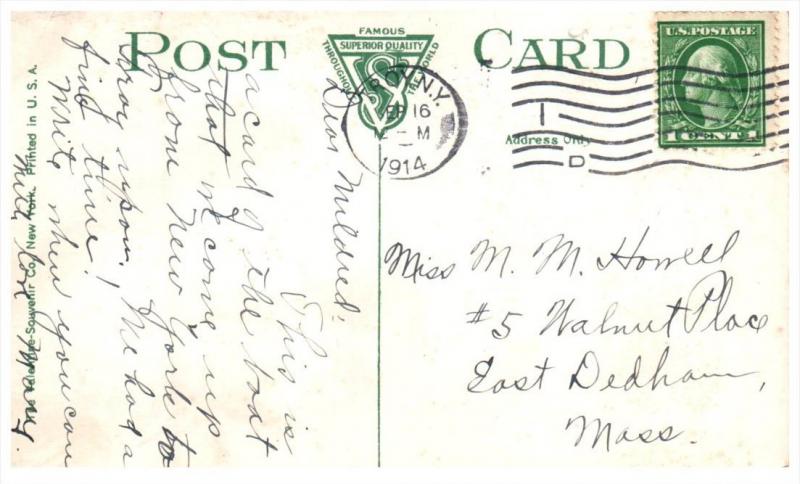 POST CARD
FAMOUS
SUPERIOR QUALITY
THROUGHOUT THE WORLD
TROY, N.Y.
SEP 16
M
1914
1
D
U.S. POSTAGE
1 CENT 1
Address Only
Dear Mildred:
This is
a card of the boat
that we come up
from New York to
Troy upon. We had a
fine time!
Write when you can
With love
Frank G.
Miss M. M. Howell
#5 Walnut Place
East Dedham,
Mass.
The Valentine-Souvenir Co., New York. Printed in U. S. A.